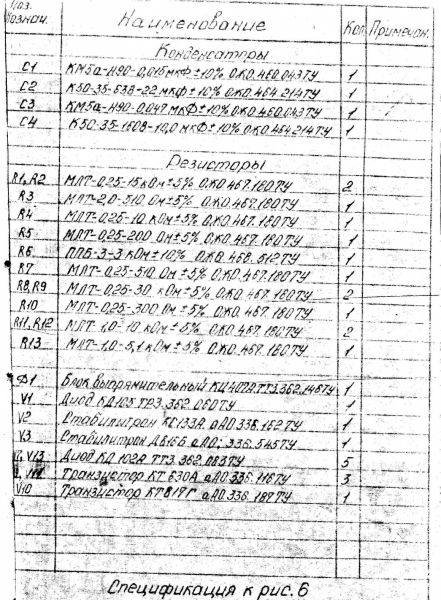 Поз. обознач. Наименование Кол Примечан.
Конденсаторы
С1 КМ5а-Н90-0,015мкФ±10% ОЖО.460.043ТУ 1
С2 К50-35-63В-22мкФ±10% ОЖО.464.214ТУ 1
С3 КМ5а-Н90-0,047мкФ±10% ОЖО.460.043ТУ 1
С4 К50-35-160В-10,0мкФ±10% ОЖО.464.214ТУ 1
Резисторы
R1,R2 МЛТ-0,25-15кОм±5% ОЖО.467.180ТУ 2
R3 МЛТ-2,0-510 Ом±5% ОЖО.467.180ТУ 1
R4 МЛТ-0,25-10 кОм±5% ОЖО.467.180ТУ 1
R5 МЛТ-0,25-200 Ом±5% ОЖО.467.180ТУ 1
R6 ППБ-3-3 кОм±10% ОЖО.468.512ТУ 1
R7 МЛТ-0,25-510 Ом±5% ОЖО.467.180ТУ 1
R8,R9 МЛТ-0,25-30 кОм±5% ОЖО.467.180ТУ 2
R10 МЛТ-0,25-300 Ом±5% ОЖО.467.180ТУ 1
R11,R12 МЛТ-1,0-10 кОм±5% ОЖО.467.180ТУ 2
R13 МЛТ-1,0-5,1кОм±5% ОЖО.467.180ТУ 1
Ф1 Блок выпрямительный КЦ407А ТТ3.362.146ТУ 1
V1 Диод КД105 ТР3.362.060ТУ 1
V2 Стабилитрон КС133А аАО.336.162ТУ 1
V3 Стабилитрон Д816Б аАО.336.545ТУ 1
V13 Диод КД 102А ТТ3.362.083ТУ 5
Транзистор КТ 630А аАО.336.116ТУ 3
V10 Транзистор КТ817Г аАО.336.187ТУ 1
Спецификация к рис.6